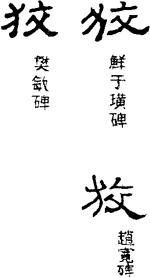 狡
鮮于璜碑
狡
趙寬碑
狡
樊敏碑